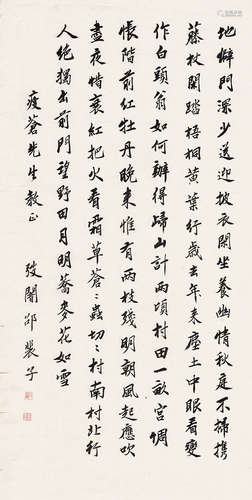 地僻門深少送迎披衣閑坐養幽情秋庭不掃攜
藤杖閑踏梧桐黃葉行歲去年來塵土中眼看變
作白頭翁如何辦得歸山計兩頃村田一畝宮惆
悵階前紅牡丹晚來惟有兩枝殘明朝風起應吹
盡夜惜衰紅把火看霜草蒼〻蟲切〻村南村北行
人絕獨出前門望野田月明蕎麥花如雪
蒼先生教正
邵裴子